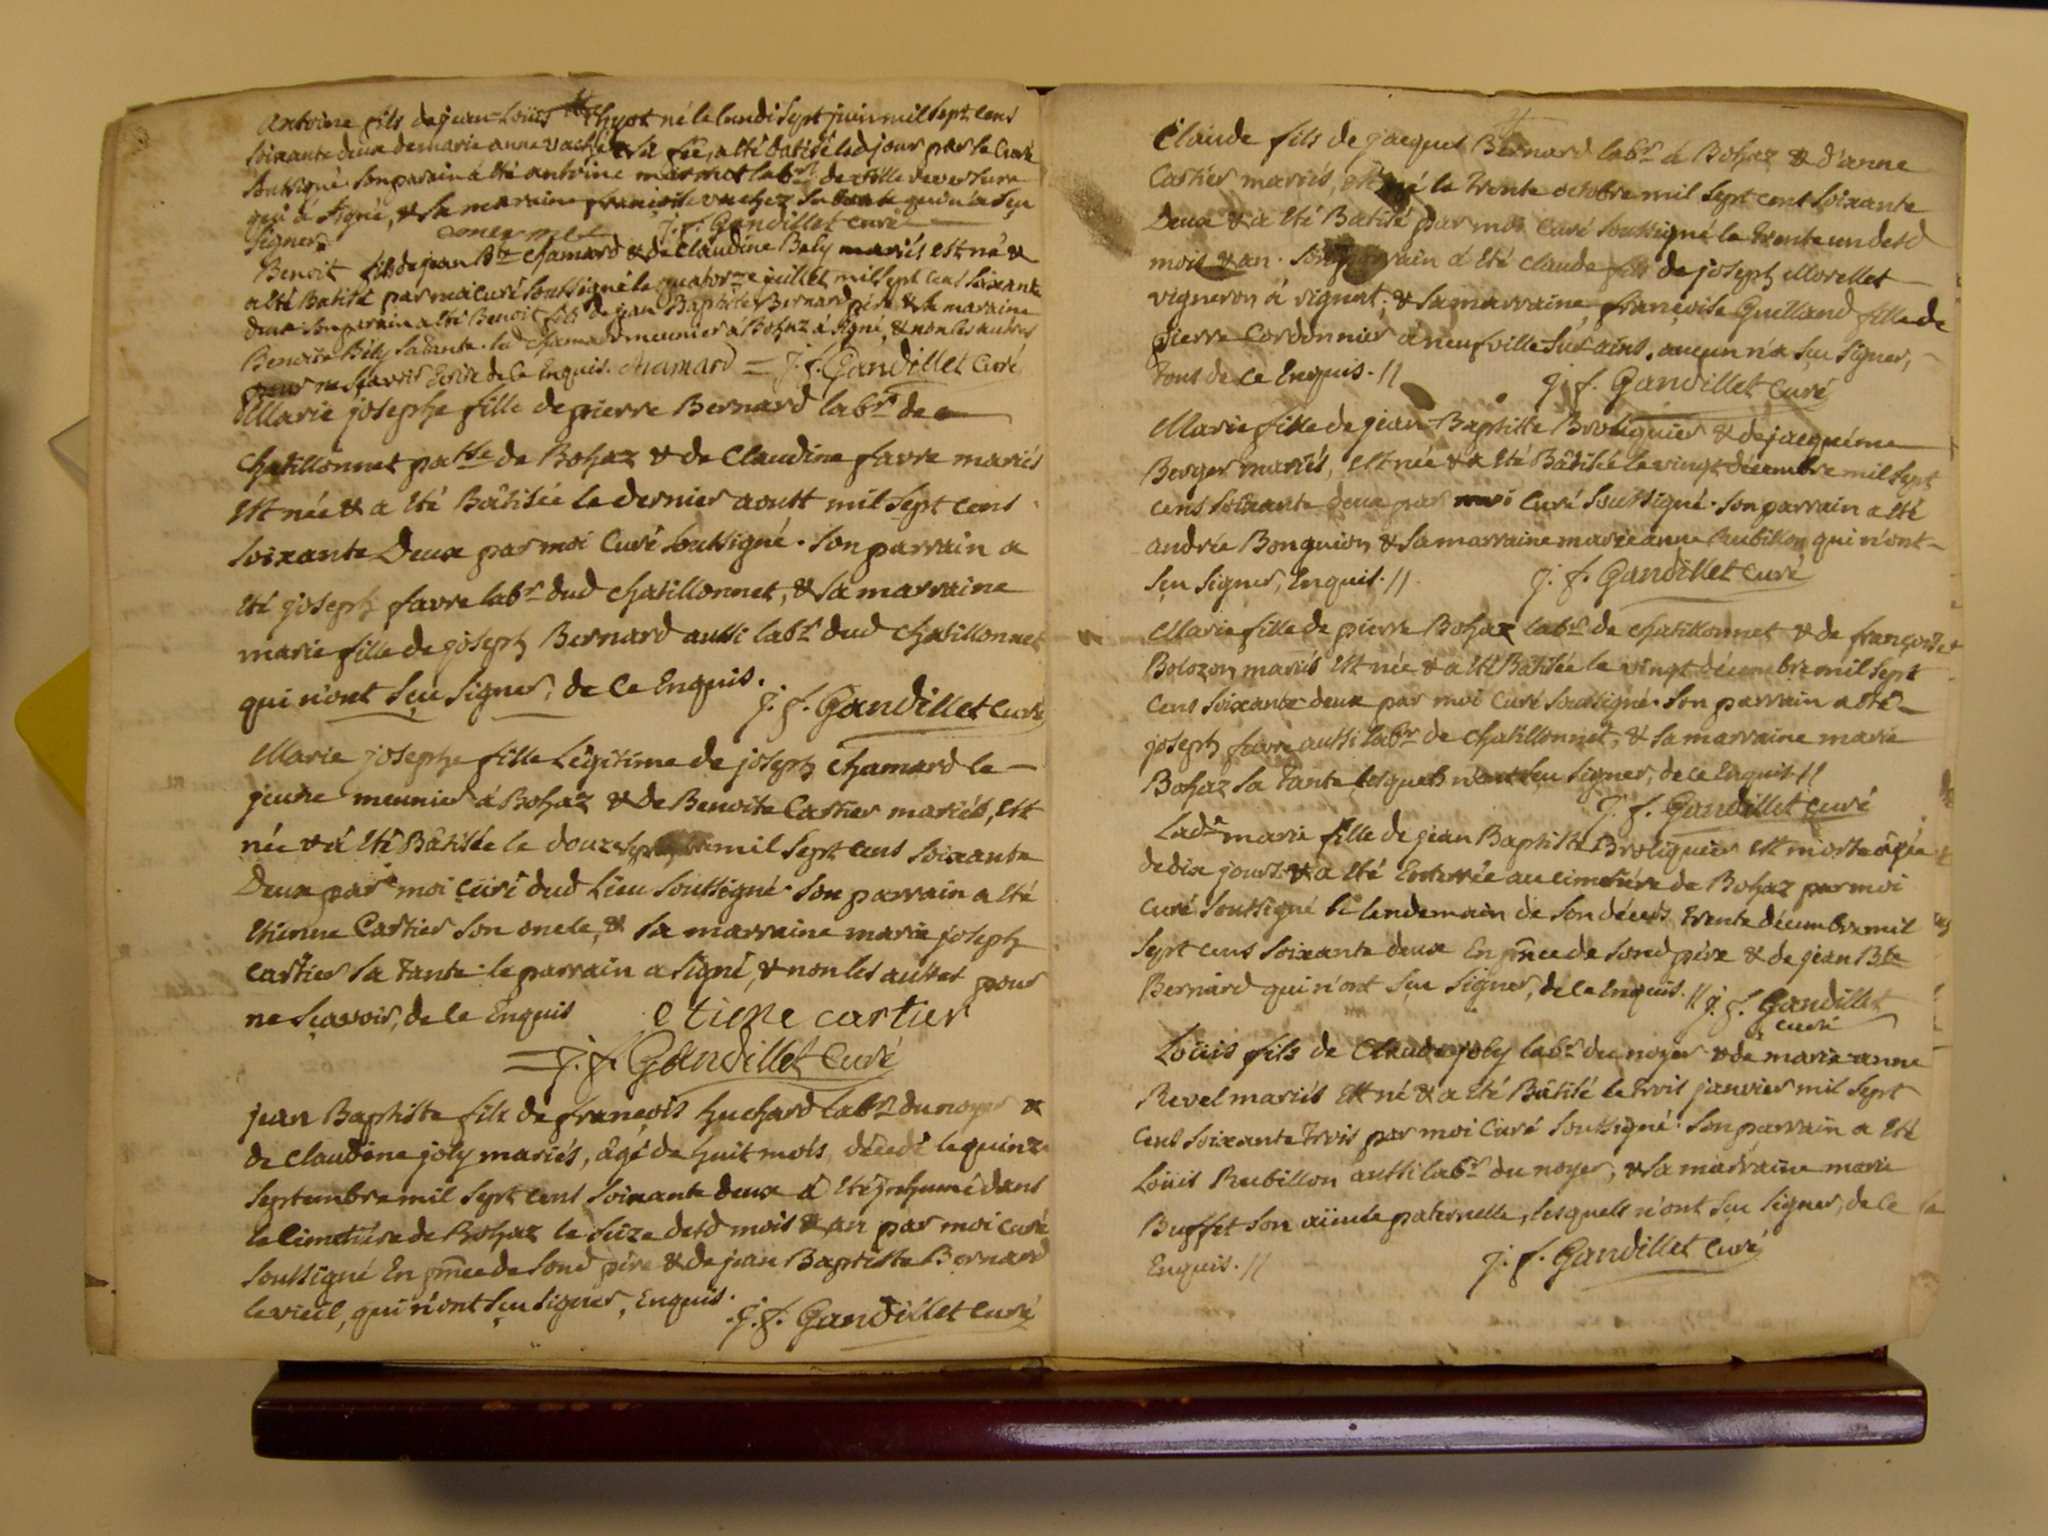 Antoine fils de jean-Loüis Thyot né le lundi sept juin mil sept cens
soixante deux de marie anne vachez sa fe, a été batisé led jour par le Curé
soussigné son parain à été antoine marmet labr. de ville reversure
qui à signé, & sa maraine françoise vachez sa tante qui n'a sçu
signer. J. f. Gandillet curé
Benoit fils de jean Bte chamard & de Claudine Bely mariés est né &
a été Batisé par moi curé soussigné le quatorze juillet mil sept cens soixante
deux son parain a été Benoit fils de jean Baptiste Bernard père & la maraine
Benoite Bély sa tante. led chamard meunier à Bohaz à signé, & non les autres
pour ne sçavoir Ecrire de Ce Enquis. chamard = J. f. Gandillet Curé
Marie josephe fille de pierre Bernard labr. de
chatillonnet passe de Bohaz & de Claudine favre mariés
Est née & a été Bâtisée le dernier aoust mil sept cens
soixante Deux par moi Curé soussigné. Son parrain a
été joseph favre labr. dud chatillonnet, & sa marraine
marie fille de joseph Bernard aussi labr. dud chatillonnet
qui n'ont sçu signer, de Ce Enquis.
J. f. Gandillet Curé
Marie josephe fille Légitime de joseph chamard le
jeune meunier à Bohaz & de Benoite Cartier mariés, Est
née & à été Bâtisée le douze mil sept cens soixante
Deux par moi Curé dud Lieu soussigné. Son parrain a été
Etienne Cartier son oncle, & sa marraine marie joseph
cartier sa tante. le parrain a signé, & non les autres pour
ne sçavoir, de Ce Enquis etiene cartier
= J. f. Gandillet Curé
jean Baptiste fils de françois huchard labr. du noyer &
de Claudine joly mariés, âgé de huit mois, décedé le quinze
septembre mil sept cens soixante deux à été jnhumé dans
le Cimetière de Bohaz le seize desd mois & an par moi curé
soussigné En pnce de sond père & de jean Baptiste Bernard
le vieil, qui n'ont sçu signer, Enquis.
J. f. Gandillet Curé
Claude fils de jacques Bernard labr. à Bohaz & d'anne
Cartier mariés, est né le trente octobre mil sept cent soixante
Deux & a été Batisé par moi Curé soussigné le trente un desd
mois & an. son parrain à été claude fils de joseph Morellet
vigneron à rignat, & sa marraine, françoise Guilland fille de
pierre Cordonnier à neufville sur ains, aucun n'a sçu signer,
tous de Ce Enquis. //
J. f. Gandillet Curé
Marie fille de jean-Baptiste Broliquier & de jacquéme
Berger mariés, est née & a été Bâtisée le vingt décembre mil sept
cens soixante deux par moi Curé soussigné. Son parrain a été
andrée Bonguion & sa marraine marie anne Rubillon, qui n'ont
sçu signer, Enquis. //
J. f. Gandillet curé
Marie fille de pierre Bohaz labr. de chatillonnet & de françoise
Bolozon mariés est née & a été Bâtisée le vingt décembre mil sept
cens soixante deux par moi Curé soussigné. Son parrain a été
joseph favre aussi labr. de chatillonnet, & sa marraine marie
Bohaz sa tante lesquels n'ont sçu signer, de ce Enquis //
J. f. Gandillet curé
Lade marie fille de jean Baptiste Broliquier est morte agée
de dix jours & a été Enterrée au cimetière de Bohaz par moi
curé soussigné le lendemain de son décès trente décembre mil
sept cens soixante deux En pnce de sond père & de jean Bte
Bernard qui n'ont sçu signer, de Ce Enquis. // J. f. Gandillet
curé
Loüis fils de Claude joly labr. du noyer & de marie-anne
Revel mariés est né & a été Bâtisé le trois janvier mil sept
cens soixante trois par moi Curé soussigné. Son parrain a été
Loüis Rubillon aussi labr. du noyer, & sa marraine marie
Buffet son aïeule paternelle, lesquels n'ont sçu signer, de Ce
Enquis. //
J. f. Gandillet Curé